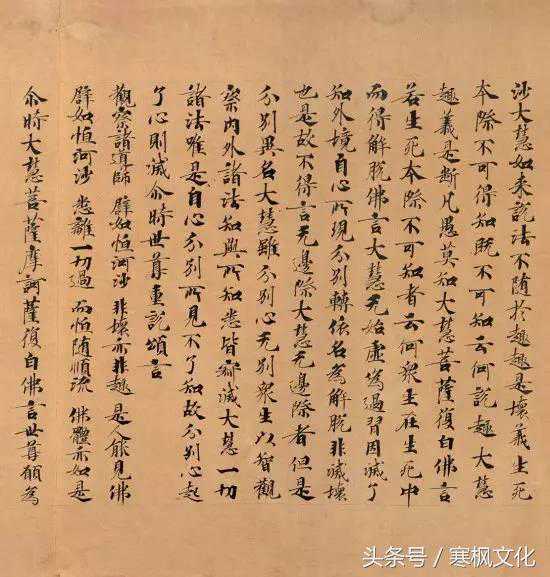 沙大慧如来說法不随於趣趣是壞義生死
本際不可得知既不可知云何說趣大慧
趣義是斷凡愚莫知大慧菩薩復白佛言
若生死本際不可知者云何衆生在生死中
而得解脱佛言大慧无始虚偽過習因滅了
知外境自心所現分別轉依名為解脱非滅壞
也是故不得言无邊際大慧无邊際者但是
分別異名大慧離分別心无別衆生以智觀
察内外諸法知與所知悉皆寂滅大慧一切
諸法唯是自心分別所見不了知故分別心起
了心則滅尒時世尊重說頌言
觀察諸導師 譬如恒河沙 非壞亦非趣 是人能見佛
譬如恒河沙 悉離一切過 而恒随順流 佛體亦如是
尒時大慧菩薩摩訶薩復白佛言世尊願為
头条号 / 寒枫文化